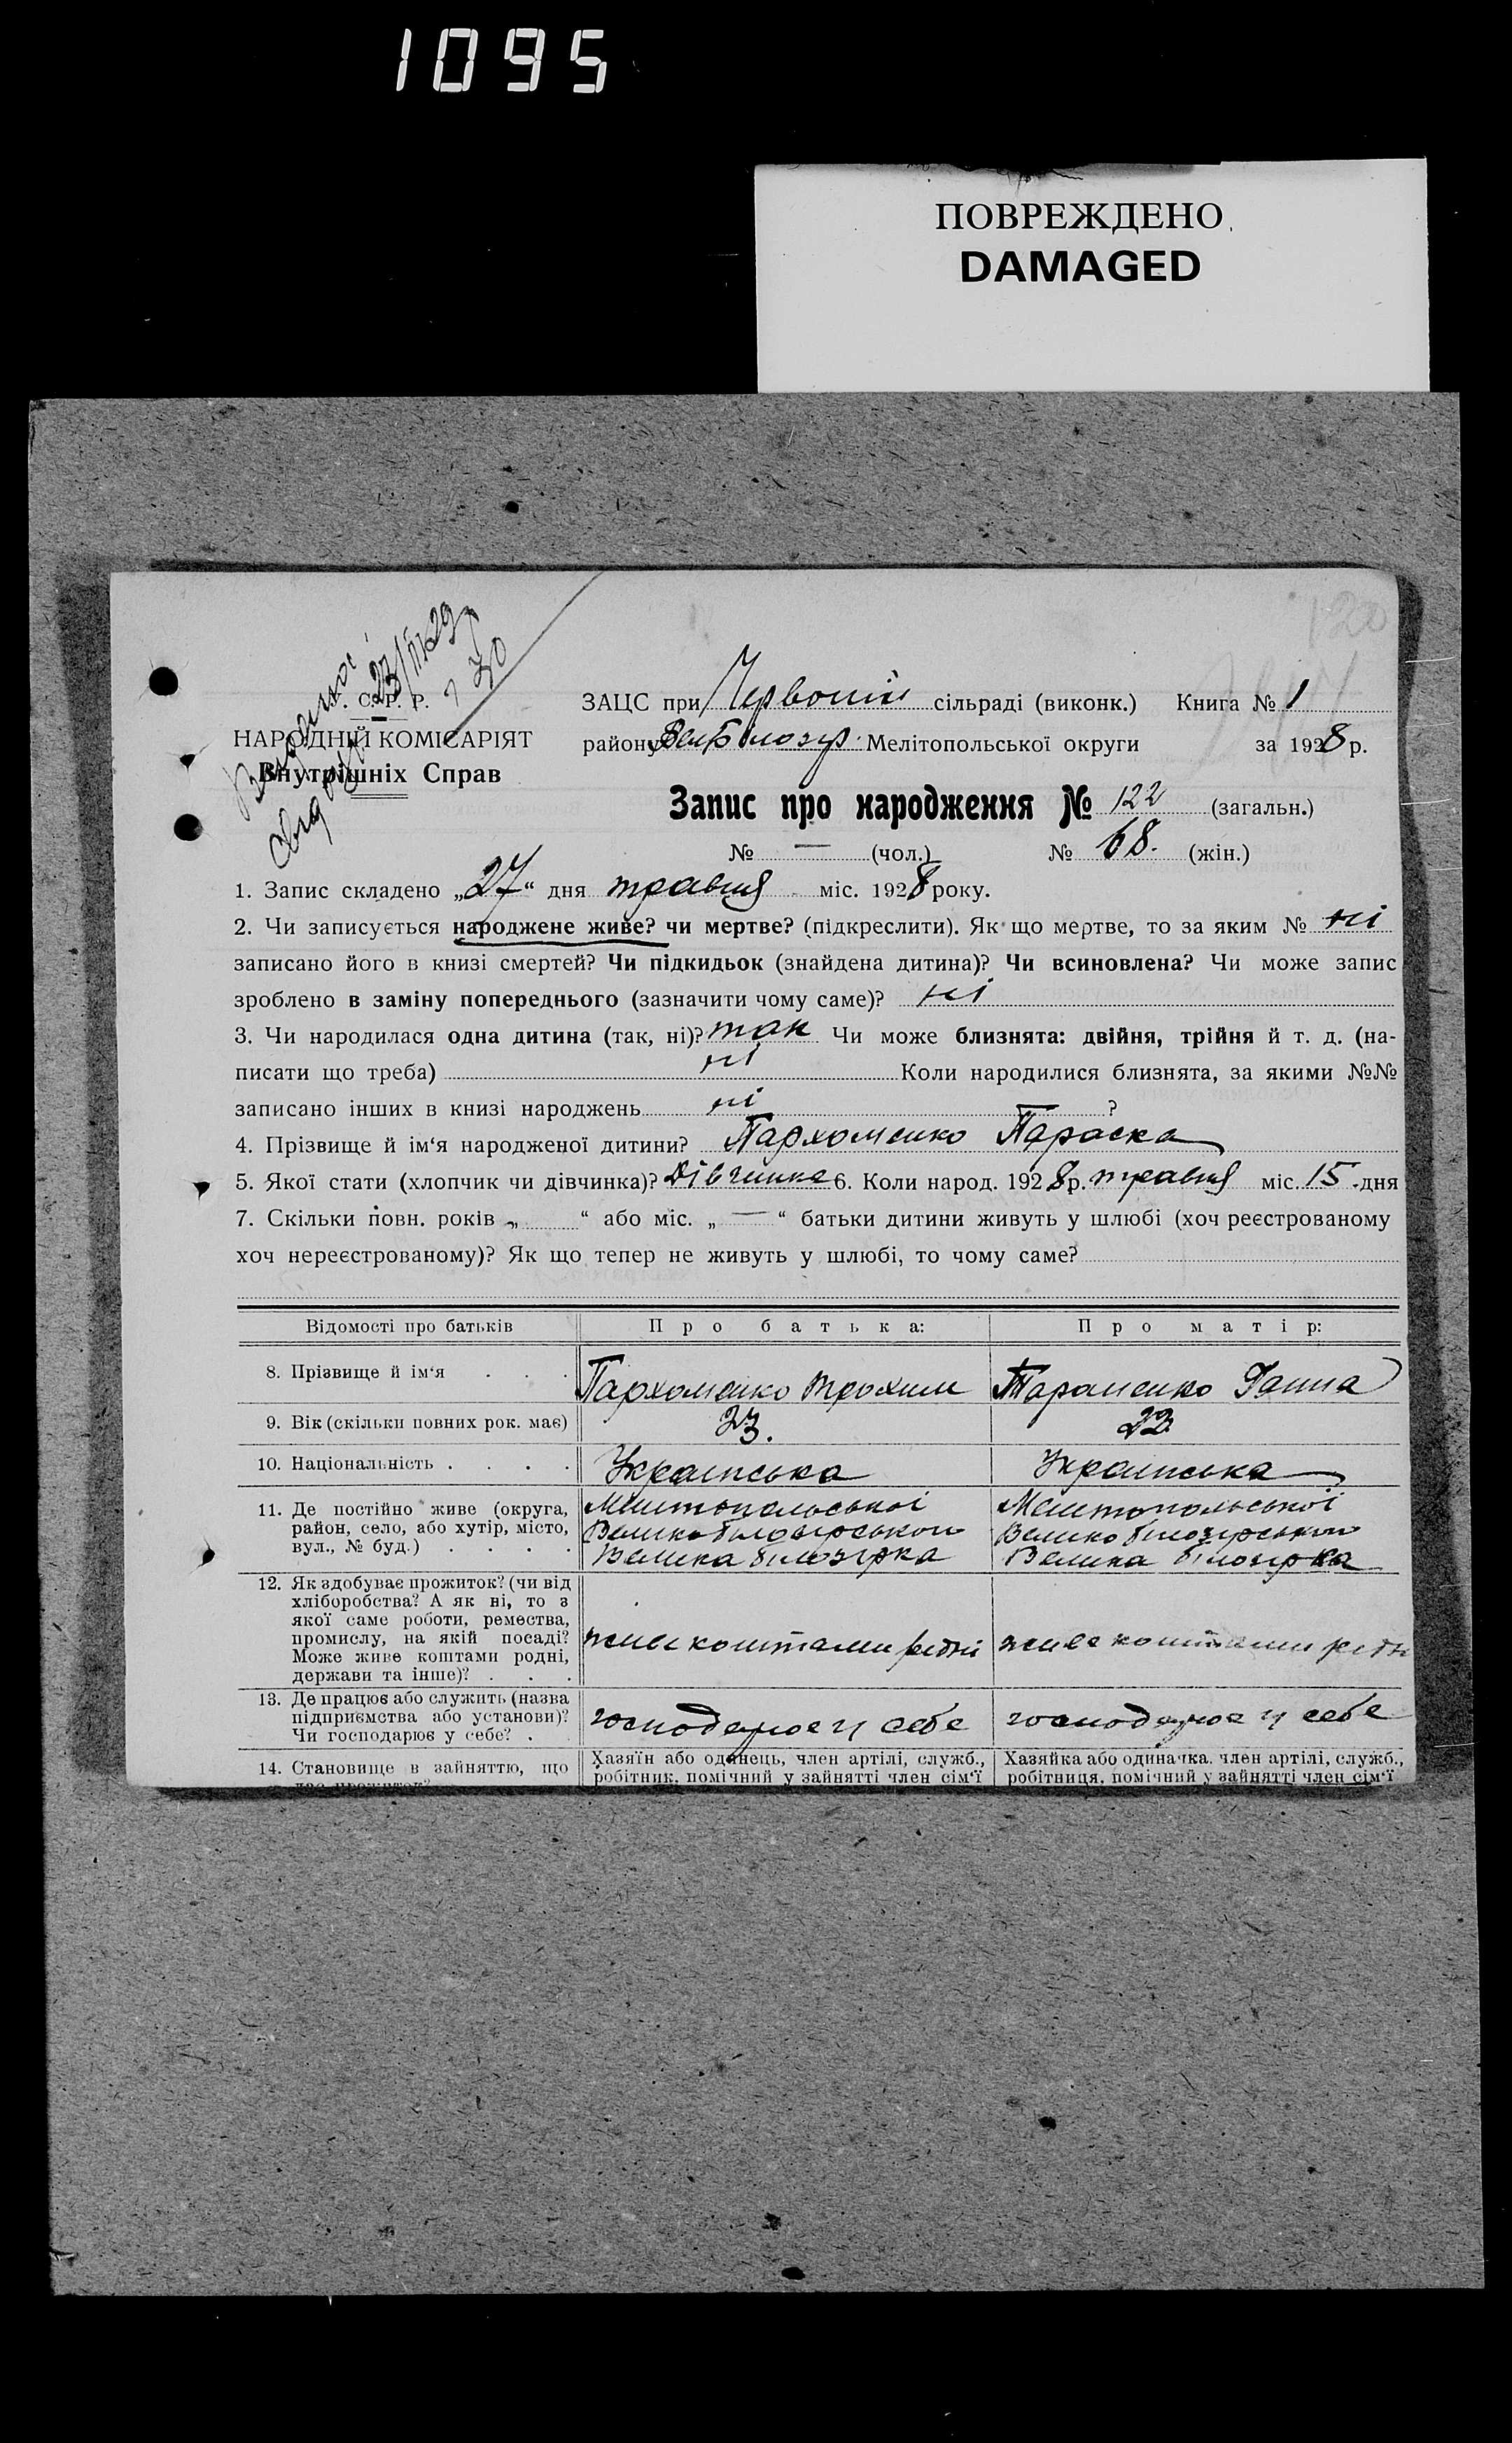 1095
ПОВРЕЖДЕНО
DAMAGED
120
С. Р. Р.
23/III 29
30
НАРОДНІЙ КОМІСАРІЯТ
Внутрішніх Справ
ЗАЦС при Червоній сільраді (виконк.) Книга № 1
району Вел Білозір. Мелітопольської округи за 1928 р.
Запис про народження № 122 (загальн.)
№ — (чол.) № 68. (жін.)
1. Запис складено „27“ дня травня міс. 1928 року.
2. Чи записується народжене живе? чи мертве? (підкреслити). Як що мертве, то за яким № ні
записано його в книзі смертей? Чи підкидьок (знайдена дитина)? Чи всиновлена? Чи може запис
зроблено в заміну попереднього (зазначити чому саме)? ні
3. Чи народилася одна дитина (так, ні)? так Чи може близнята: двійня, трійня й т. д. (на-
писати що треба) ні Коли народилися близнята, за якими №№
записано інших в книзі народжень ні ?
4. Прізвище й ім‘я народженої дитини? Пархоменко Параска
5. Якої стати (хлопчик чи дівчинка)? Дівчинка 6. Коли народ. 1928 р. травня міс. 15 дня
7. Скільки повн. років „ “ або міс. „ — “ батьки дитини живуть у шлюбі (хоч реєстрованому
хоч нереєстрованому)? Як що тепер не живуть у шлюбі, то чому саме?
Відомості про батьків Про батька: Про матір:
8. Прізвище й ім‘я . . . Пархоменко Трохим Тараненко Ганна
9. Вік (скільки повних рок. має) 23. 22
10. Національність . . . . Українська Українська
11. Де постійно живе (округа, Мелітопольської Мелітопольської
район, село, або хутір, місто, Великобілозірського Великобілозірського
вул., № буд.) . . . . Велика білозірка Велика білозірка
12. Як здобуває прожиток? (чи від
хліборобства? А як ні, то з
якої саме роботи, ремества,
промислу, на якій посаді? живе коштами рідні живе коштами рідн
Може живе коштами родні,
держави та інше)? . . .
13. Де працює або служить (назва
підприємства або установи)? господарює у себе господарює у себе
Чи господарює у себе? .
14. Становище в зайняттю, що Хазяїн або одинець, член артілі, служб., Хазяйка або одиначка, член артілі, служб.,
дає прожиток? робітник, помічний у зайнятті член сім‘ї робітниця, помічний у зайнятті член сім‘ї